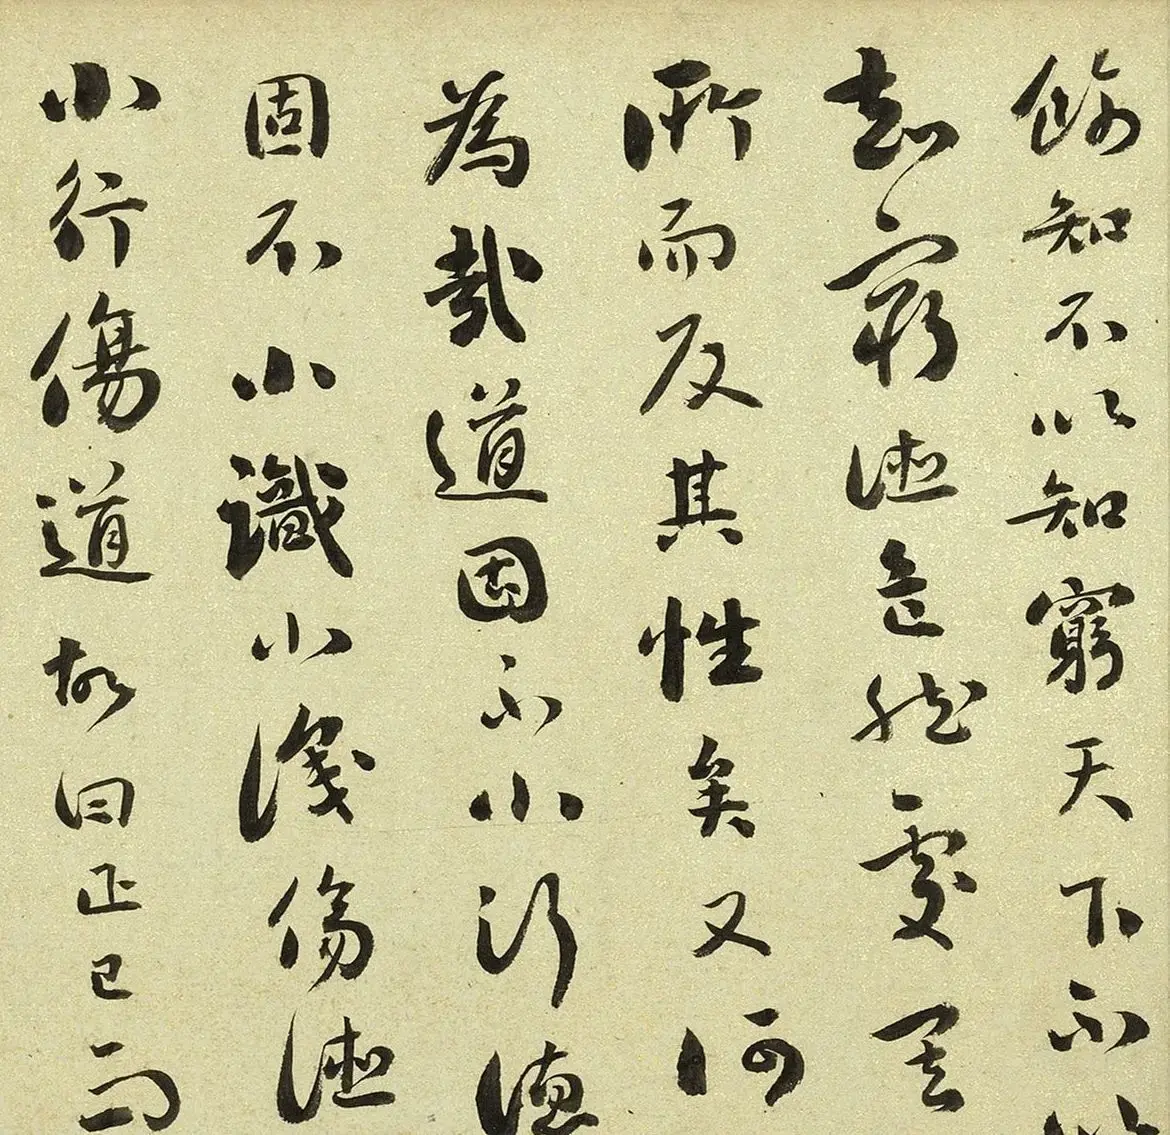 飾知不以知窮天下不
知窮德危然處其
所而反其性矣又何
為哉道固不小行德
固不小識小識傷德
小行傷道故曰正己而